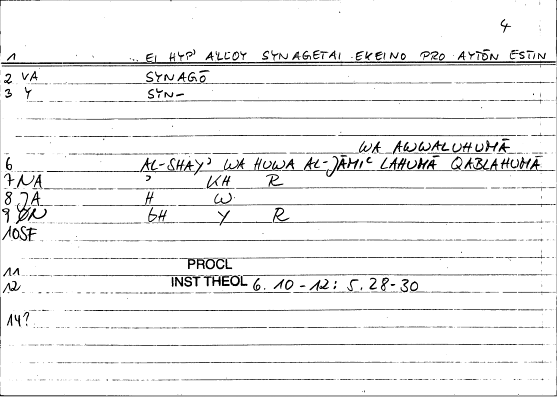 4
1 .. EI HYP' ALLOY SYNAGETAI EKEINO PRO AYTŌN ESTIN
2 VA SYNAGŌ
3 Y SYN-
WA AWWALUHUMĀ
6 AL-SHAY' WA HUWA AL-JĀMIC LAHUMĀ QABLAHUMĀ
7 NA ' KH R
8 JA H W
9 ØN GH Y R
10 SF
11 PROCL
12 INST THEOL 6. 10-12: 5. 28-30
14?